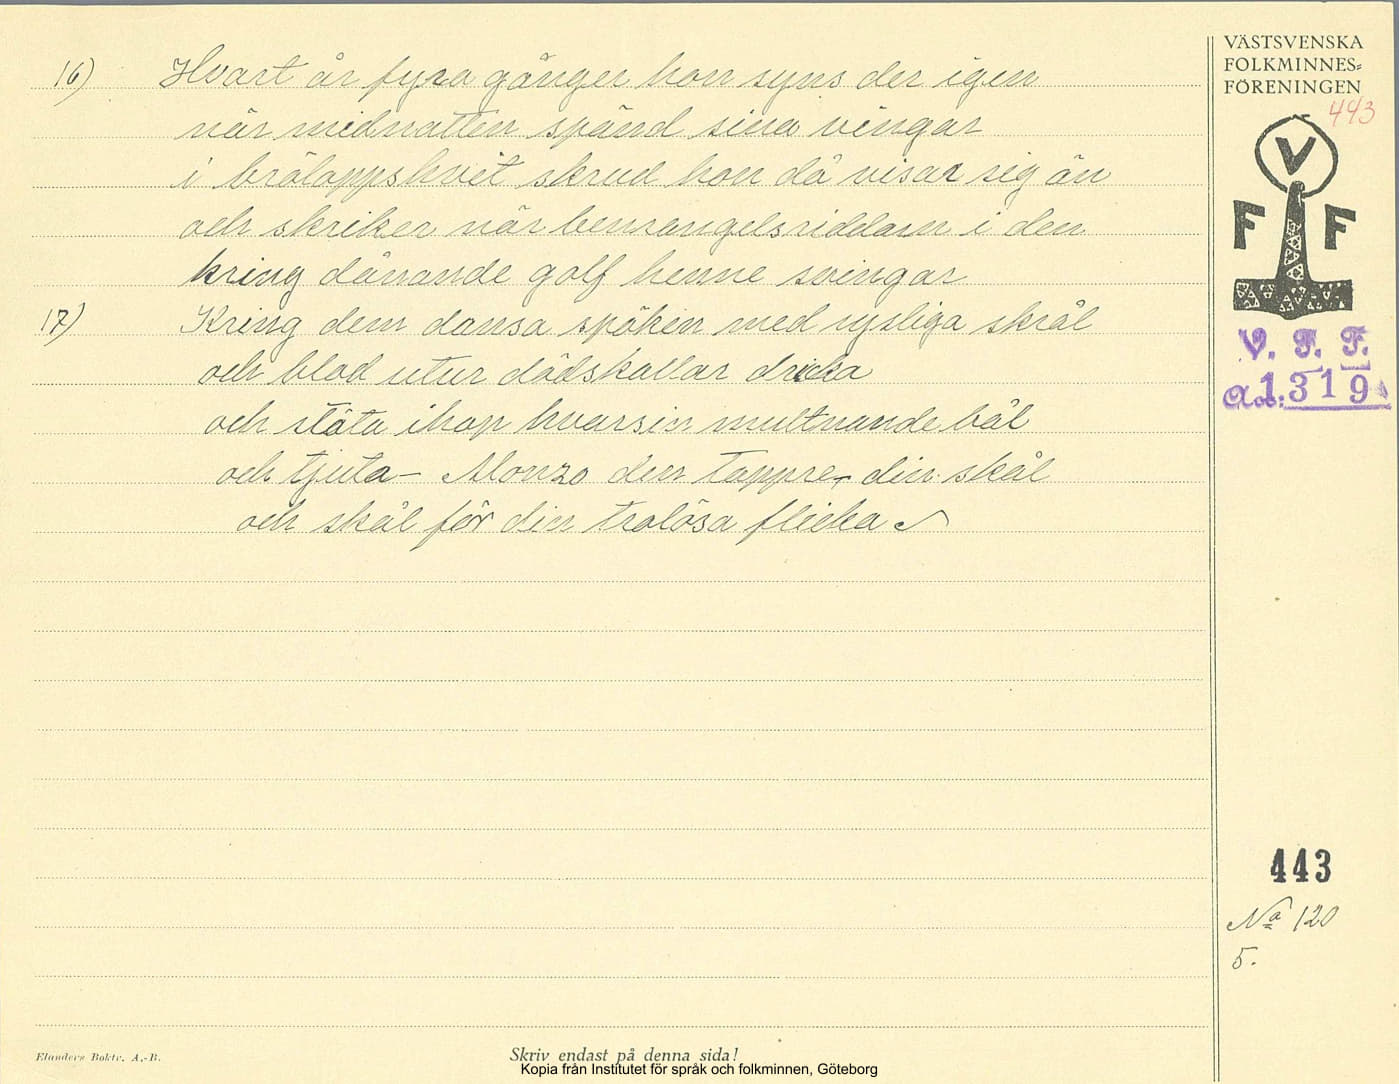 16) Hvart år fyra gånger hon syns der igen
när midnatten spänd sina vingar
i brölappshvit skrud hon då visar sig än
och skriker när benrangelsriddarn i den
kring dånande golf henne svingar
17) Kring dem dansa spöken med rysliga skrål
och blod utur dödskallar dricka
och stöta ihop hvarsin multnande bål
och tjuta – Alonzo den tappre, din skål
och skål för din trolösa flicka
VÄSTSVENSKA
FOLKMINNES=
FÖRENINGEN
443
V
F F
V. F. F.
1319
443
No 120
5.
Elanders Boktr. A.-B.
Skriv endast på denna sida!
Kopia från Institutet för språk och folkminnen, Göteborg